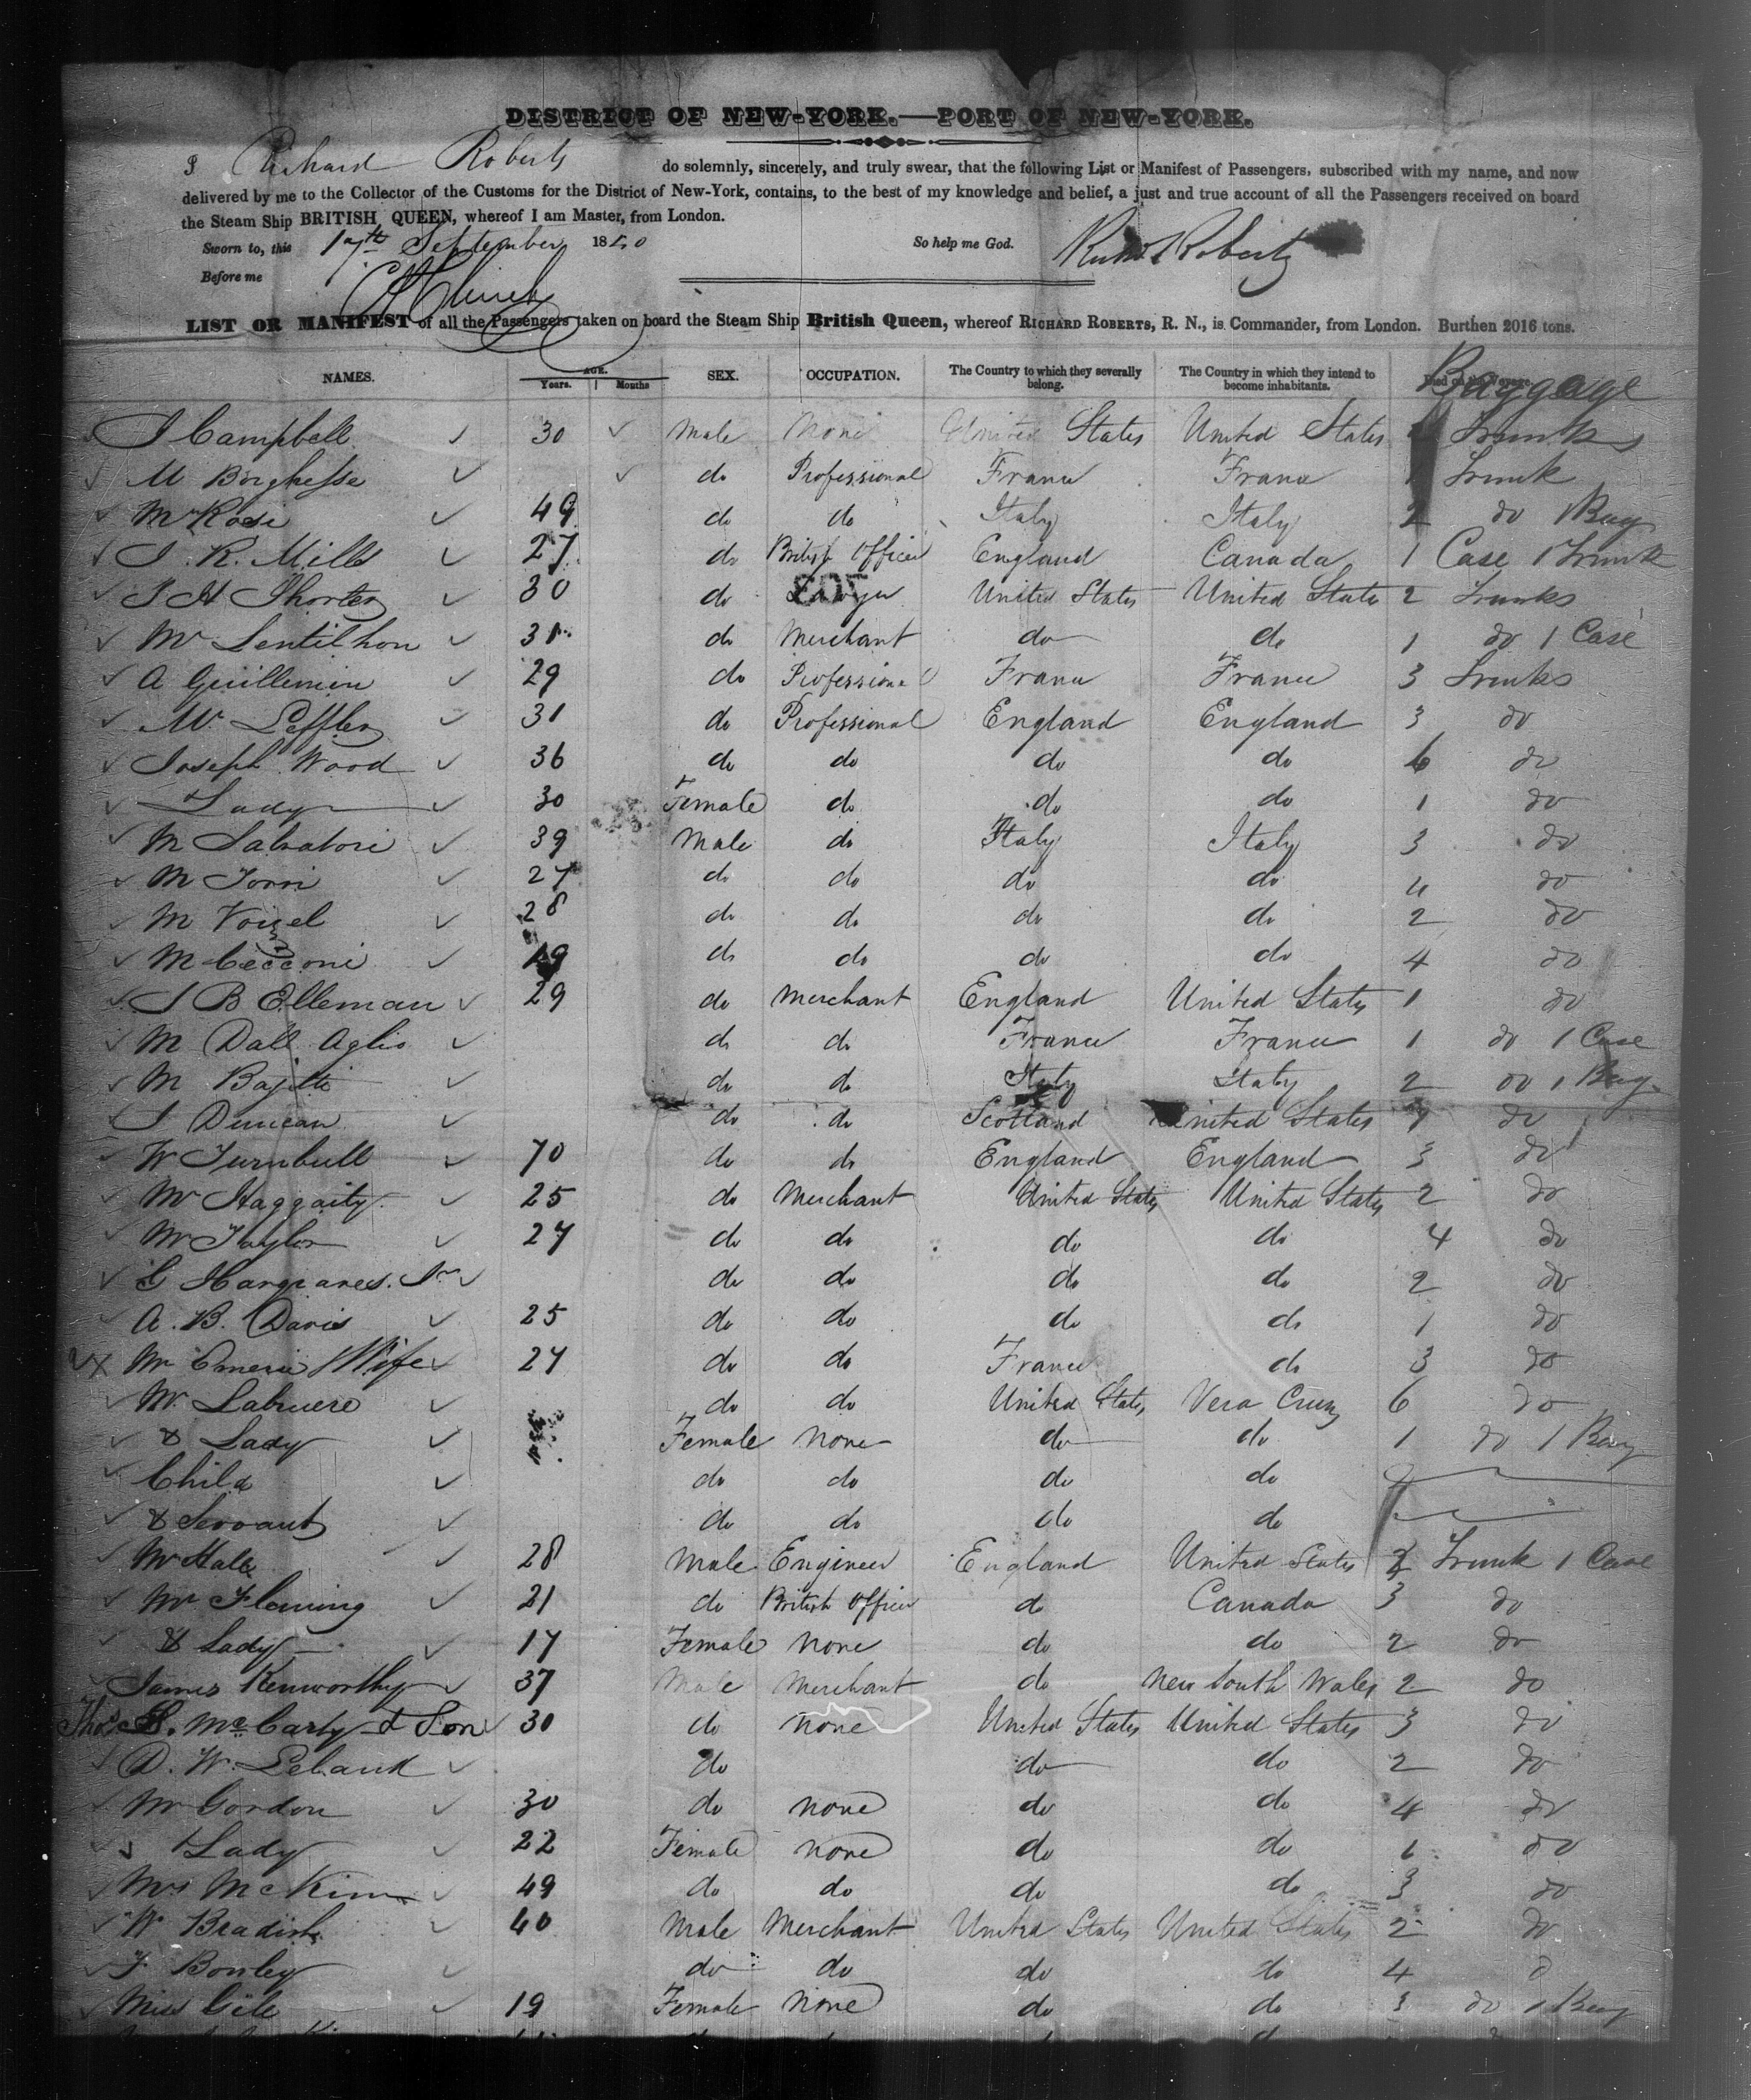 DISTRICT OF NEW-YORK.—PORT OF NEW-YORK.
I Richard Roberts do solemnly, sincerely, and truly swear, that the following List or Manifest of Passengers, subscribed with my name, and now
delivered by me to the Collector of the Customs for the District of New-York, contains, to the best of my knowledge and belief, a just and true account of all the Passengers received on board
the Steam Ship BRITISH QUEEN, whereof I am Master, from London.
Sworn to, this 17th September 1840 So help me God. Richd Roberts
Before me
LIST OR MANIFEST of all the Passengers taken on board the Steam Ship British Queen, whereof RICHARD ROBERTS, R. N., is Commander, from London. Burthen 2016 tons.
NAMES. AGE. Years. Months SEX. OCCUPATION. The Country to which they severally belong. The Country in which they intend to become inhabitants. Baggage
J Campbell 30 Male None United States United States Trunks
M Borghesse do Professional France France 1 Trunk
M Rosi 49 do do Italy Italy 2 do 1 Bag
J. R. Mills 27 do British Officer England Canada 1 Case 1 Trunk
J H Shorter 30 do Lawyer United States United States 2 Trunks
Mr Lentilhon 31 do Merchant do do 1 do 1 Case
A Guillemin 29 do Professional France France 3 Trunks
Mr Leffler 31 do Professional England England 3 do
Joseph Wood 36 do do do do 6 do
Lady 30 Female do do do 1 do
M Salvatori 39 Male do Italy Italy 3 do
M Torri 27 do do do do 4 do
M Voizel 28 do do do do 2 do
M Cecconi do do do do 4 do
J B Elleman 29 do Merchant England United States 1 do
M Dall Aglio do do France France 1 do 1 Case
M do do Italy Italy 2 do 1 Bag
J Duncan do do Scotland United States do
W Turnbull 70 do do England England 3 do
Mr Haggaity 25 do Merchant United States United States 2 do
Mr Taylor 27 do do do do 4 do
G Hargraves Jr do do do do 2 do
A. B. Davis 25 do do do do 1 do
X Mr Emerie Wife 27 do do France do 3 do
Mr Labruere do do United States Vera Cruz 6 do
& Lady Female None do do 1 do 1 Bag
Child do do do do
& Servant do do do do
Mr Hale 28 Male Engineer England United States Trunk 1 Case
Mr Fleming 21 do British Officer do Canada 3 do
& Lady 17 Female None do do 2 do
James Kenworthy 37 Male Merchant do New South Wales 2 do
Thos. Mc Carty & Son 30 do none United States United States 3 do
D. W. do do do 2 do
Mr Gordon 30 do none do do 4 do
Lady 22 Female none do do 1 do
Mrs McKim 49 do do do do 3 do
W Bradish 40 Male Merchant United States United States 2 do
F Bowley do do do do 4
Miss Gile 19 Female None do do 3 do 1 Bag